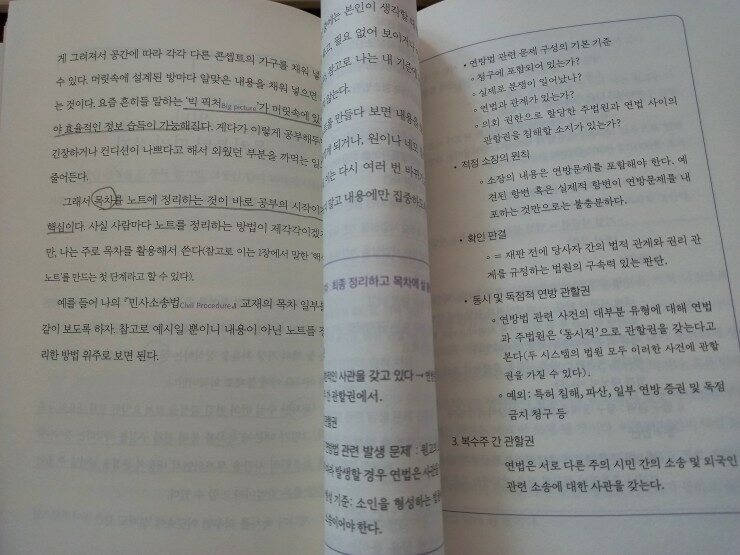 게 그려져서 공간에 따라 각각 다른 콘셉트의 가구를 채워 넣
수 있다. 머릿속에 설계된 방마다 알맞은 내용을 채워 넣으면
는 것이다. 요즘 흔히들 말하는 '빅 픽처Big picture'가 머릿속에 있
야 효율적인 정보 습득이 가능해진다. 게다가 이렇게 공부해두
긴장하거나 컨디션이 나쁘다고 해서 외웠던 부분을 까먹는 일
줄어든다.
그래서 목차를 노트에 정리하는 것이 바로 공부의 시작이
핵심이다. 사실 사람마다 노트를 정리하는 방법이 제각각이겠
만, 나는 주로 목차를 활용해서 쓴다(참고로 이는 1장에서 말한
노트'를 만드는 첫 단계라고 할 수 있다).
예를 들어 나의 『민사소송법Civil Procedure』 교재의 목차 일부
같이 보도록 하자. 참고로 예시일 뿐이니 내용이 아닌 노트를
리한 방법 위주로 보면 된다.
에는 본인이 생각할
고, 필요 없어 보이거나
참고로 나는 내 기준
만들다 보면 내용
게 되거나, 원이나 네모
는 다시 여러 번 바뀌
말고 내용에만 집중하
최종 정리하고 목차에 살
사관을 갖고 있다 →
관할권에서.
관할권
연방법 관련 발생 문제' : 원고
발생할 경우 연법은 사관
기준: 소인을 형성하는
소송이어야 한다.
• 연방법 관련 문제 구성의 기본 기준
◦ 청구에 포함되어 있는가?
◦ 실제로 분쟁이 일어났나?
◦ 연법과 관계가 있는가?
◦ 의회 권한으로 할당한 주법원과 연법 사이의
관할권을 침해할 소지가 있는가?
• 적정 소장의 원칙
◦ 소장의 내용은 연방문제를 포함해야 한다. 예
견된 항변 혹은 실제적 항변이 연방문제를 내
포하는 것만으로는 불충분하다.
• 확인 판결
◦ = 재판 전에 당사자 간의 법적 관계와 권리 관
계를 규정하는 법원의 구속력 있는 판단.
• 동시 및 독점적 연방 관할권
◦ 연방법 관련 사건의 대부분 유형에 대해 연법
과 주법원은 '동시적'으로 관할권을 갖는다고
본다(두 시스템의 법원 모두 이러한 사건에 관할
권을 가질 수 있다).
◦ 예외: 특허 침해, 파산, 일부 연방 증권 및 독점
금지 청구 등
3. 복수주 간 관할권
연법은 서로 다른 주의 시민 간의 소송 및 외국인
관련 소송에 대한 사관을 갖는다.